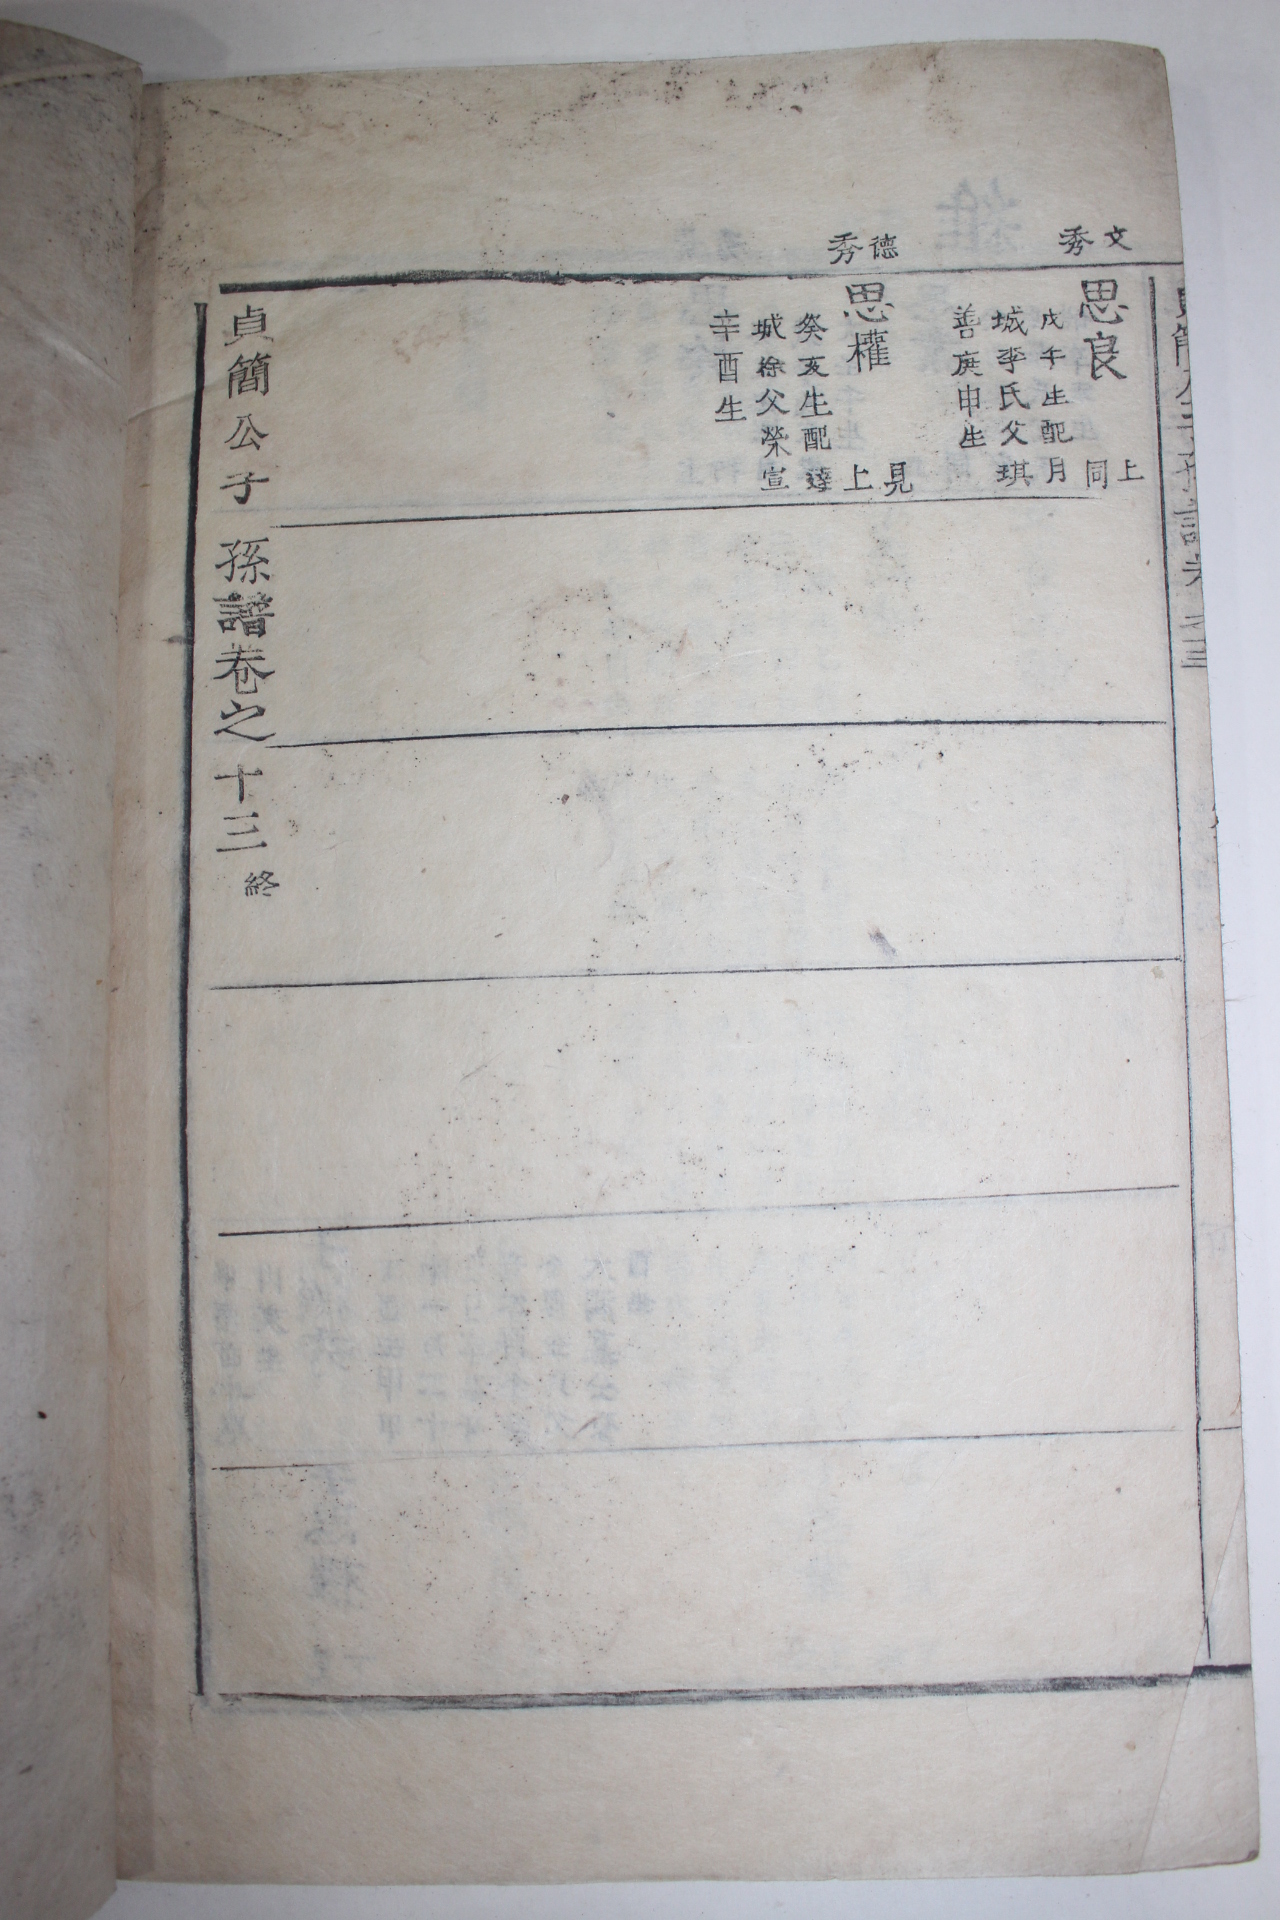 文
秀
思良
同上
戊午生配月
城李氏父琪
善庚申生
德
秀
思權
見上
癸亥生配達
城徐父榮宣
辛酉生
貞簡公子孫譜卷之十三終